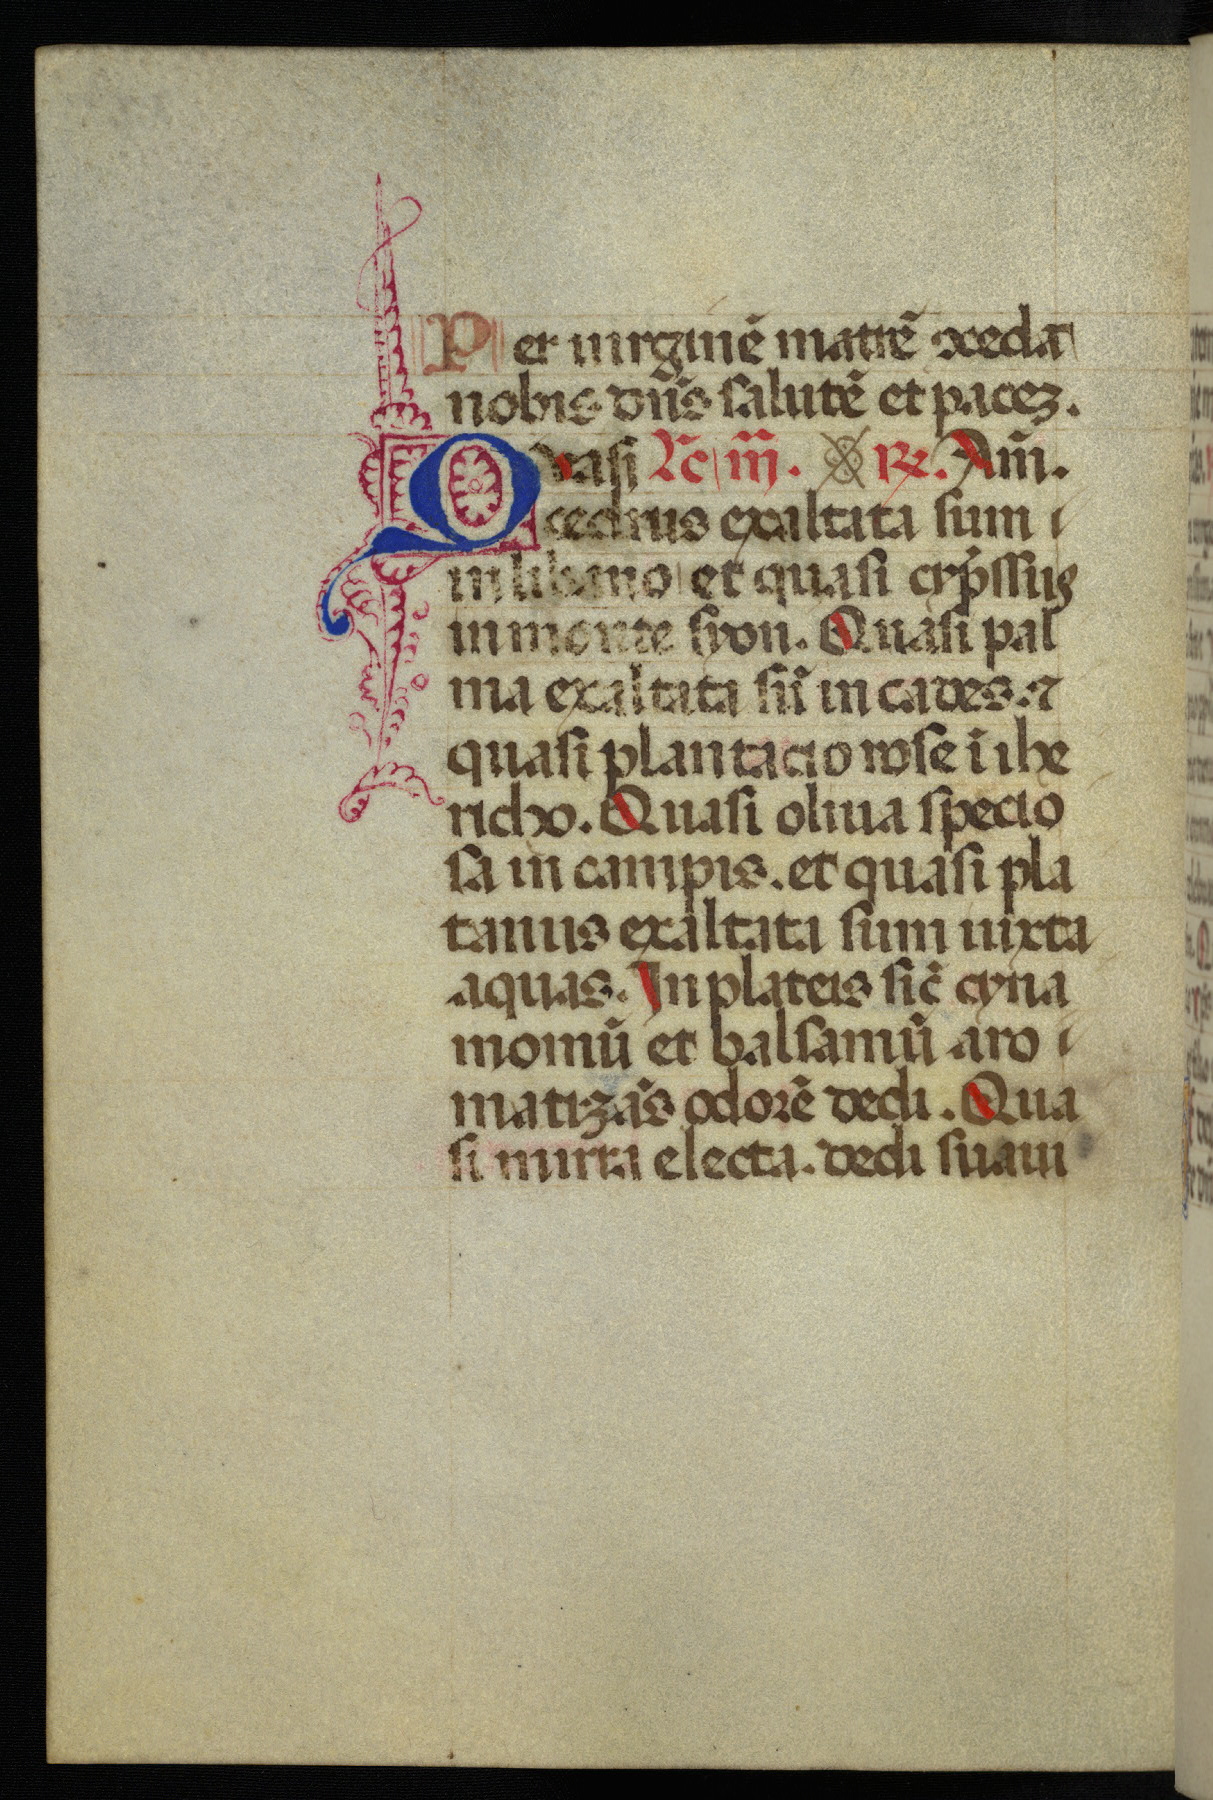 Per uirginē matrē ɔcedat
nobis dn̄s salutē et pacez.
Quasi Lc̄ iii. R̄. Am̄.
cedrus exaltata sum i
in libano et quasi cyp̄ssus
in monte syon. Quasi pal
ma exaltata sū in cades. ⁊
quasi plantacio rose ī ihe
richo. Quasi oliua specio
sa in campis. et quasi pla
tanus exaltata sum iuxta
aquas. In plateis sic̄ cyna
momū et balsamū aro i
matizās odorē dedi. Qua
si mirra electa. dedi suaui